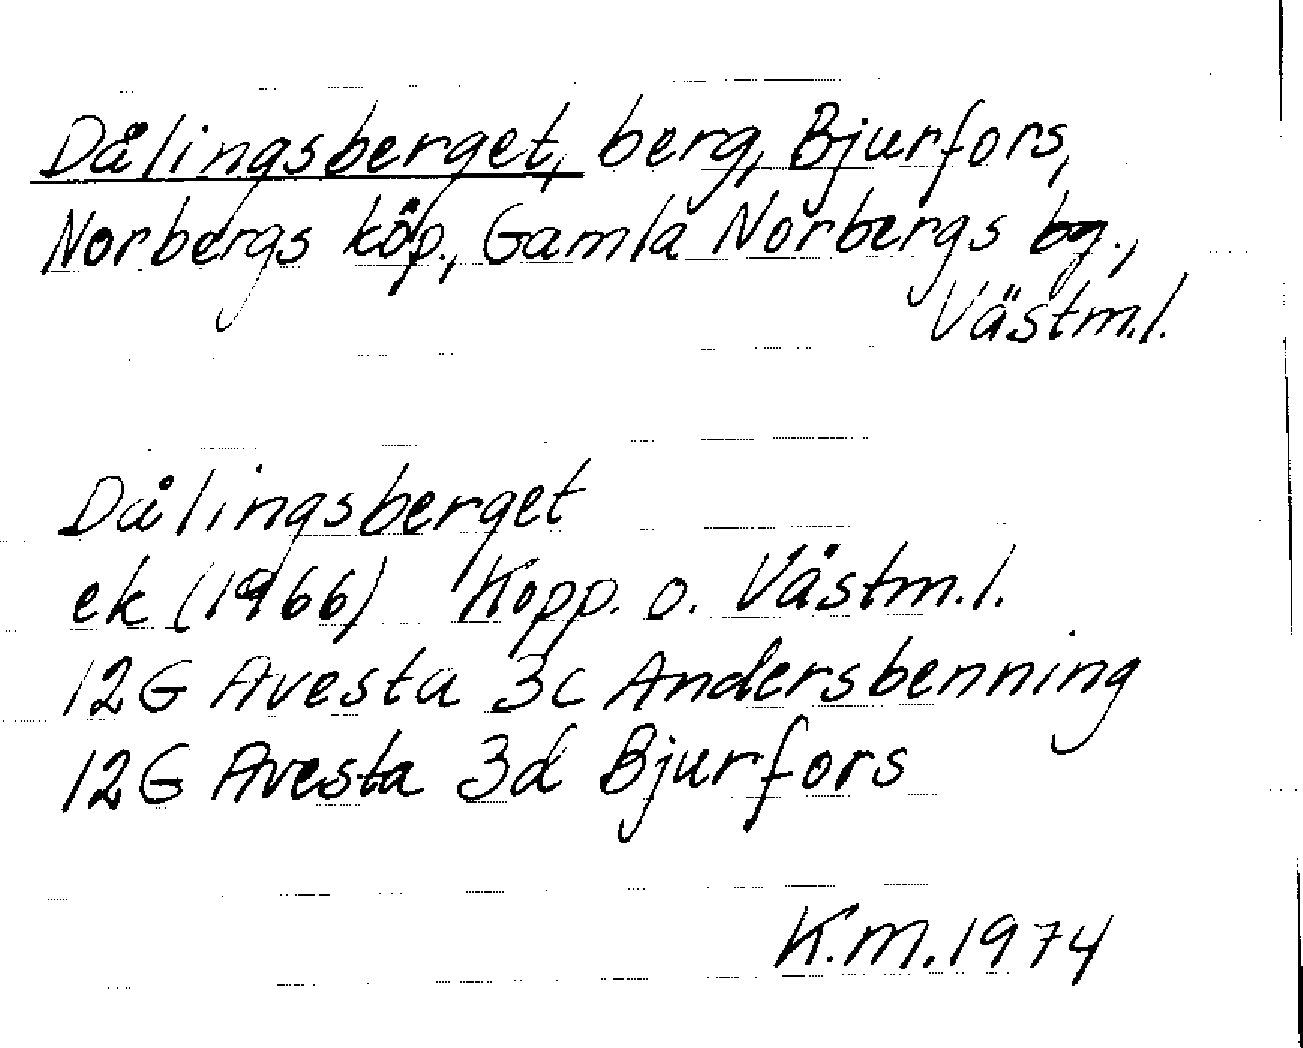 Dålingsberget, berg, Bjurfors,
Norbergs köp., Gamla Norbergs bg.,
Västm.l.
Dålingsberget
ek (1966) Kopp. o. Västm.l.
12G Avesta 3c Andersbenning
12G Avesta 3d Bjurfors
K.M. 1974